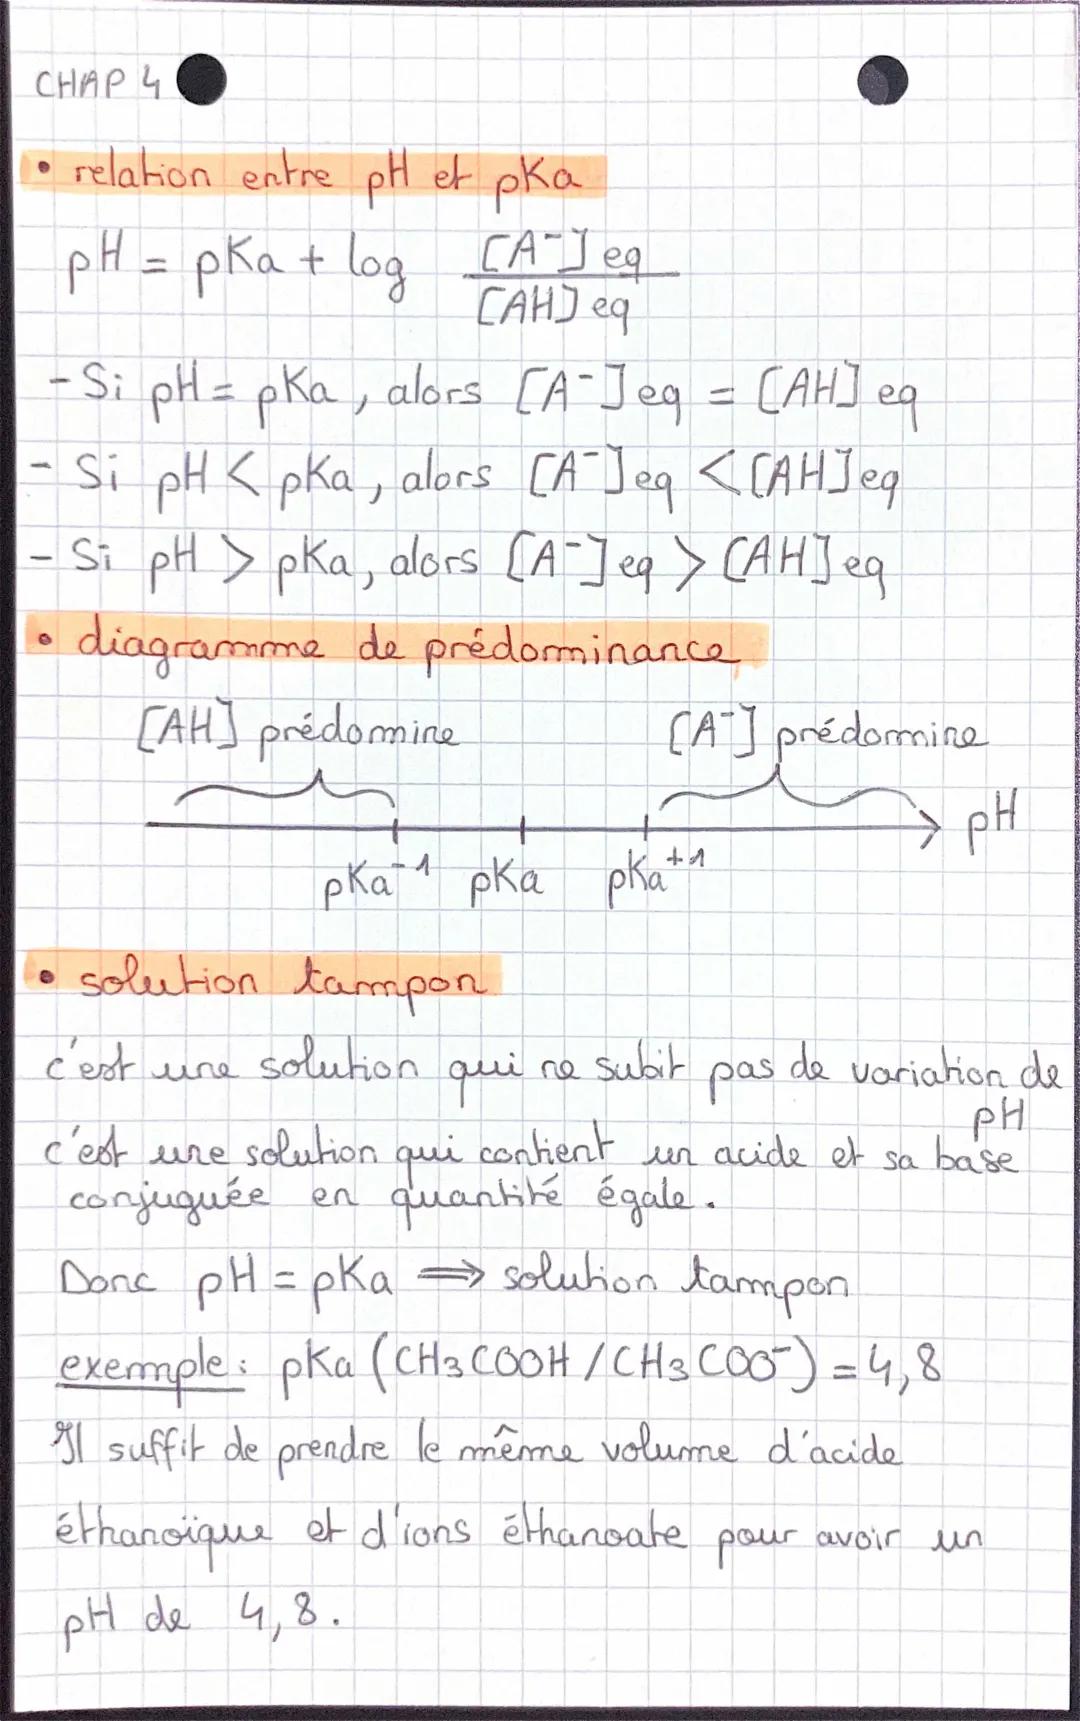 CHAP 4
• relation entre pH et pKa
pH = pKa + log [A⁻]eq / [AH]eq
- Si pH = pKa, alors [A⁻]eq = [AH]eq
- Si pH < pKa, alors [A⁻]eq < [AH]eq
- Si pH > pKa, alors [A⁻]eq > [AH]eq
• diagramme de prédominance
[AH] prédomine [A⁻] prédomine
pH
pKa⁻¹ pKa pKa⁺¹
• solution tampon
c'est une solution qui ne subit pas de variation de
pH
c'est une solution qui contient un acide et sa base
conjuguée en quantité égale.
Donc pH = pKa ⟹ solution tampon
exemple : pKa (CH3COOH / CH3COO⁻) = 4,8
Il suffit de prendre le même volume d'acide
éthanoïque et d'ions éthanoate pour avoir un
pH de 4,8.